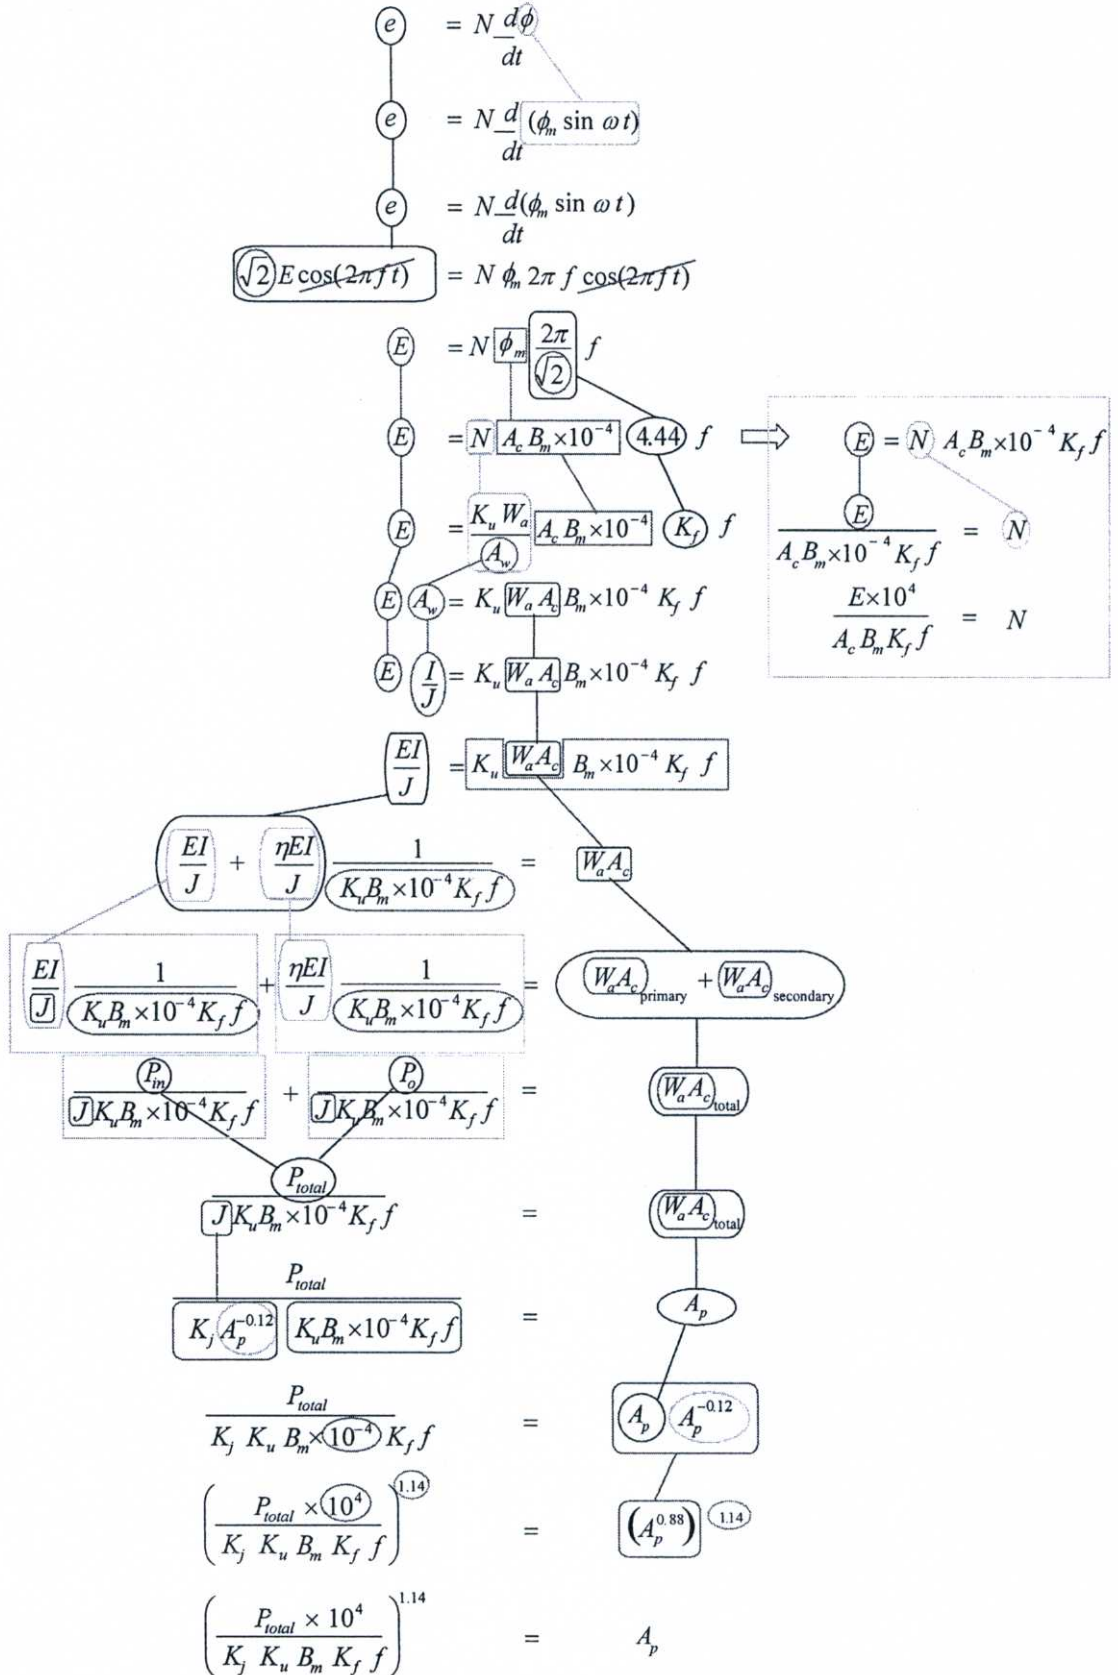 e = N dϕ/dt
e = N d/dt (ϕₘ sin ω t)
e = N d/dt (ϕₘ sin ω t)
√2 E cos(2π f t) = N ϕₘ 2π f cos(2π f t)
E = N ϕₘ 2π/√2 f
E = N A_c Bₘ×10⁻⁴ 4.44 f ⇨ E = N A_c Bₘ×10⁻⁴ K_f f
E = K_u W_a/A_w A_c Bₘ×10⁻⁴ K_f f
E/(A_c Bₘ×10⁻⁴ K_f f) = N
E A_w = K_u W_a A_c Bₘ×10⁻⁴ K_f f
E×10⁴/(A_c Bₘ K_f f) = N
E I/J = K_u W_a A_c Bₘ×10⁻⁴ K_f f
EI/J = K_u W_a A_c Bₘ×10⁻⁴ K_f f
EI/J + ηEI/J 1/(K_u Bₘ×10⁻⁴ K_f f) = W_a A_c
EI/J 1/(K_u Bₘ×10⁻⁴ K_f f) + ηEI/J 1/(K_u Bₘ×10⁻⁴ K_f f) = W_a A_c primary + W_a A_c secondary
P_in/(J K_u Bₘ×10⁻⁴ K_f f) + P_o/(J K_u Bₘ×10⁻⁴ K_f f) = W_a A_c total
P_total/(J K_u Bₘ×10⁻⁴ K_f f) = W_a A_c total
P_total/(K_j A_p^−0.12 K_u Bₘ×10⁻⁴ K_f f) = A_p
P_total/(K_j K_u Bₘ×10⁻⁴ K_f f) = A_p A_p^−0.12
(P_total × 10⁴/(K_j K_u Bₘ K_f f))^1.14 = (A_p^0.88)^1.14
(P_total × 10⁴/(K_j K_u Bₘ K_f f))^1.14 = A_p